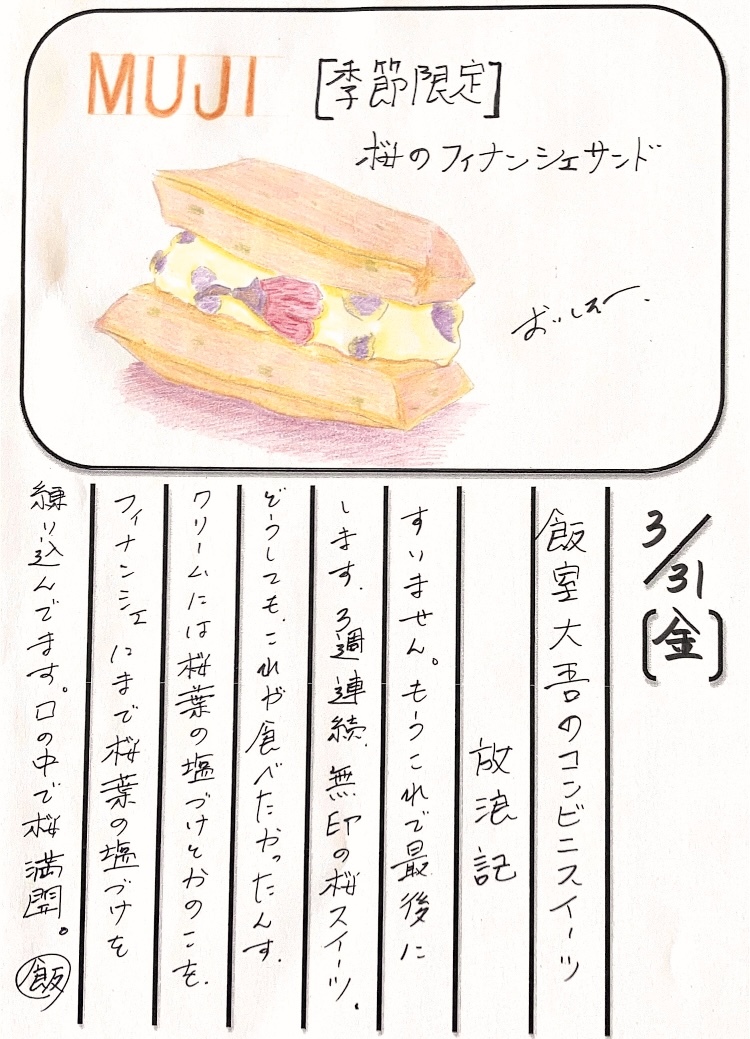 MUJI [季節限定]
桜のフィナンシェサンド
おいしえー.
3/31 [金]
飯室大吾のコンビニスイーツ
放浪記
すいません。もうこれで最後に
します. 3週連続. 無印の桜スイーツ.
どうしても.これが食べたかったんす.
クリームには桜葉の塩づけとかのこを.
フィナンシェにまで桜葉の塩づけを
練り込んでます。口の中で桜満開。
飯